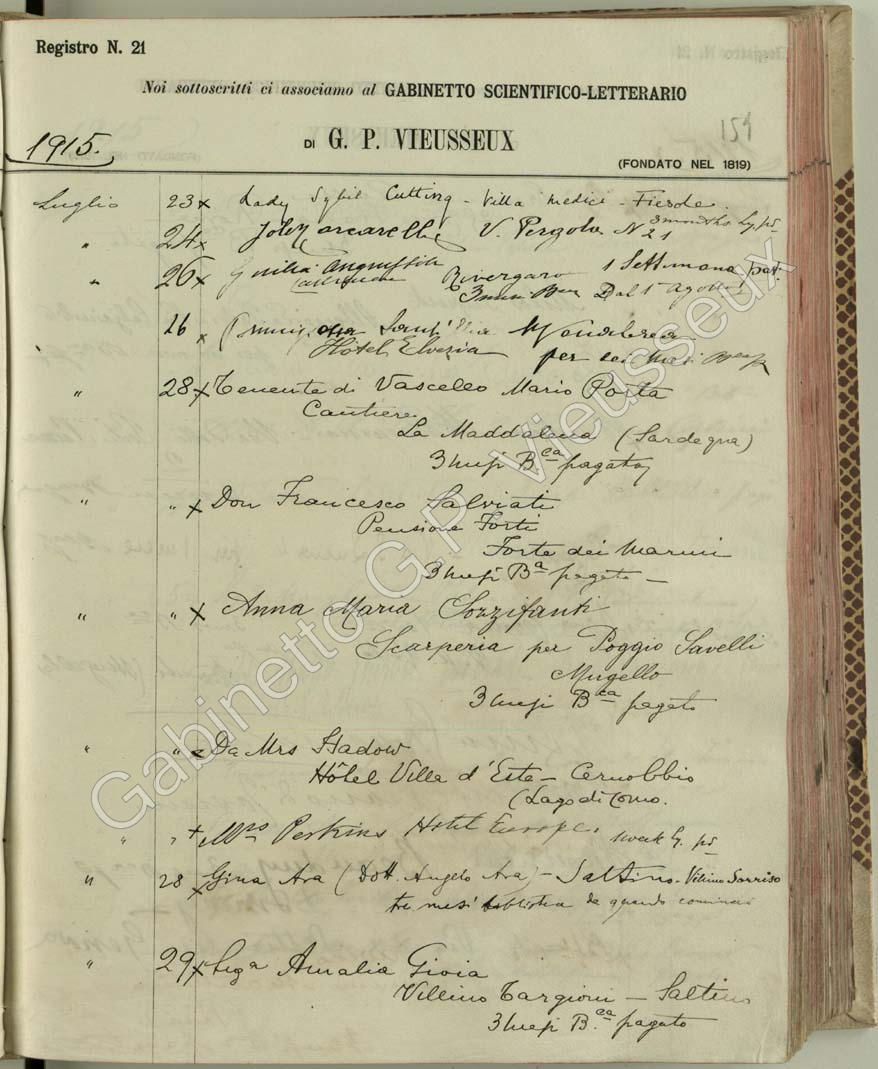 Registro N. 21
Noi sottoscritti ci associamo al GABINETTO SCIENTIFICO-LETTERARIO
159
1915.
DI G. P. VIEUSSEUX
(FONDATO NEL 1819)
Luglio 23 x Lady Sybil Cutting - Villa Medici - Fiesole.
" 24 x V. Pergola N 21 3 months
" 26 x Giulia Anguissola Rivergaro 1 Settimana
3 mesi Dal 1° Agosto
26 x
Hôtel Elvezia per sei mesi
" 28 x Tenente di Vascello Mario Porta
Cantiere
La Maddalena (Sardegna)
3 mesi B.ca pagato
" " x Don Francesco Salviati
Pensione Forti
Forte dei Marmi
3 mesi B.a pagato —
" " x Anna Maria Sozzifanti
Scarperia per Poggio Savelli
Mugello
3 mesi B.ca pagato
" " x Da Mrs Hadow
Hôtel Villa d'Este — Cernobbio
(Lago di Como.
" " + Mrs Perkins Hotel Europe. 1 week
" 28 x Gina Ara (Dott. Angelo Ara) - Saltino - Villino Sorriso
tre mesi da quando comincia
" 29 x Sig.a Amalia Gioia
Villino Targioni — Saltino
3 mesi B.ca pagato
Gabinetto G.P. Vieusseux